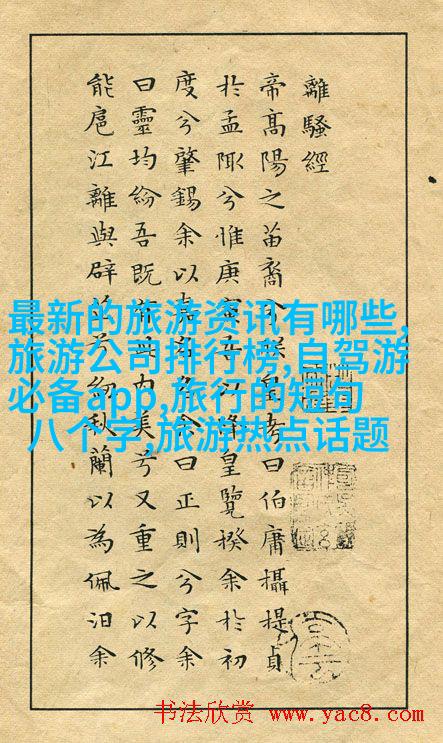 離騷經
帝高陽之苗裔兮朕皇考曰伯庸攝提貞
於孟陬兮惟庚寅吾以降皇覽揆余於初
度兮肇錫余以嘉名名余曰正則兮字余
曰靈均紛吾既有此内美兮又重之以修
能扈江離與辟芷兮紉秋蘭以為佩汩余
最新的旅游资讯有哪些,
旅游公司排行榜,自驾游
必备app,旅行的短句
八个字,旅游热点话题
书法欣赏 www.yac8.com